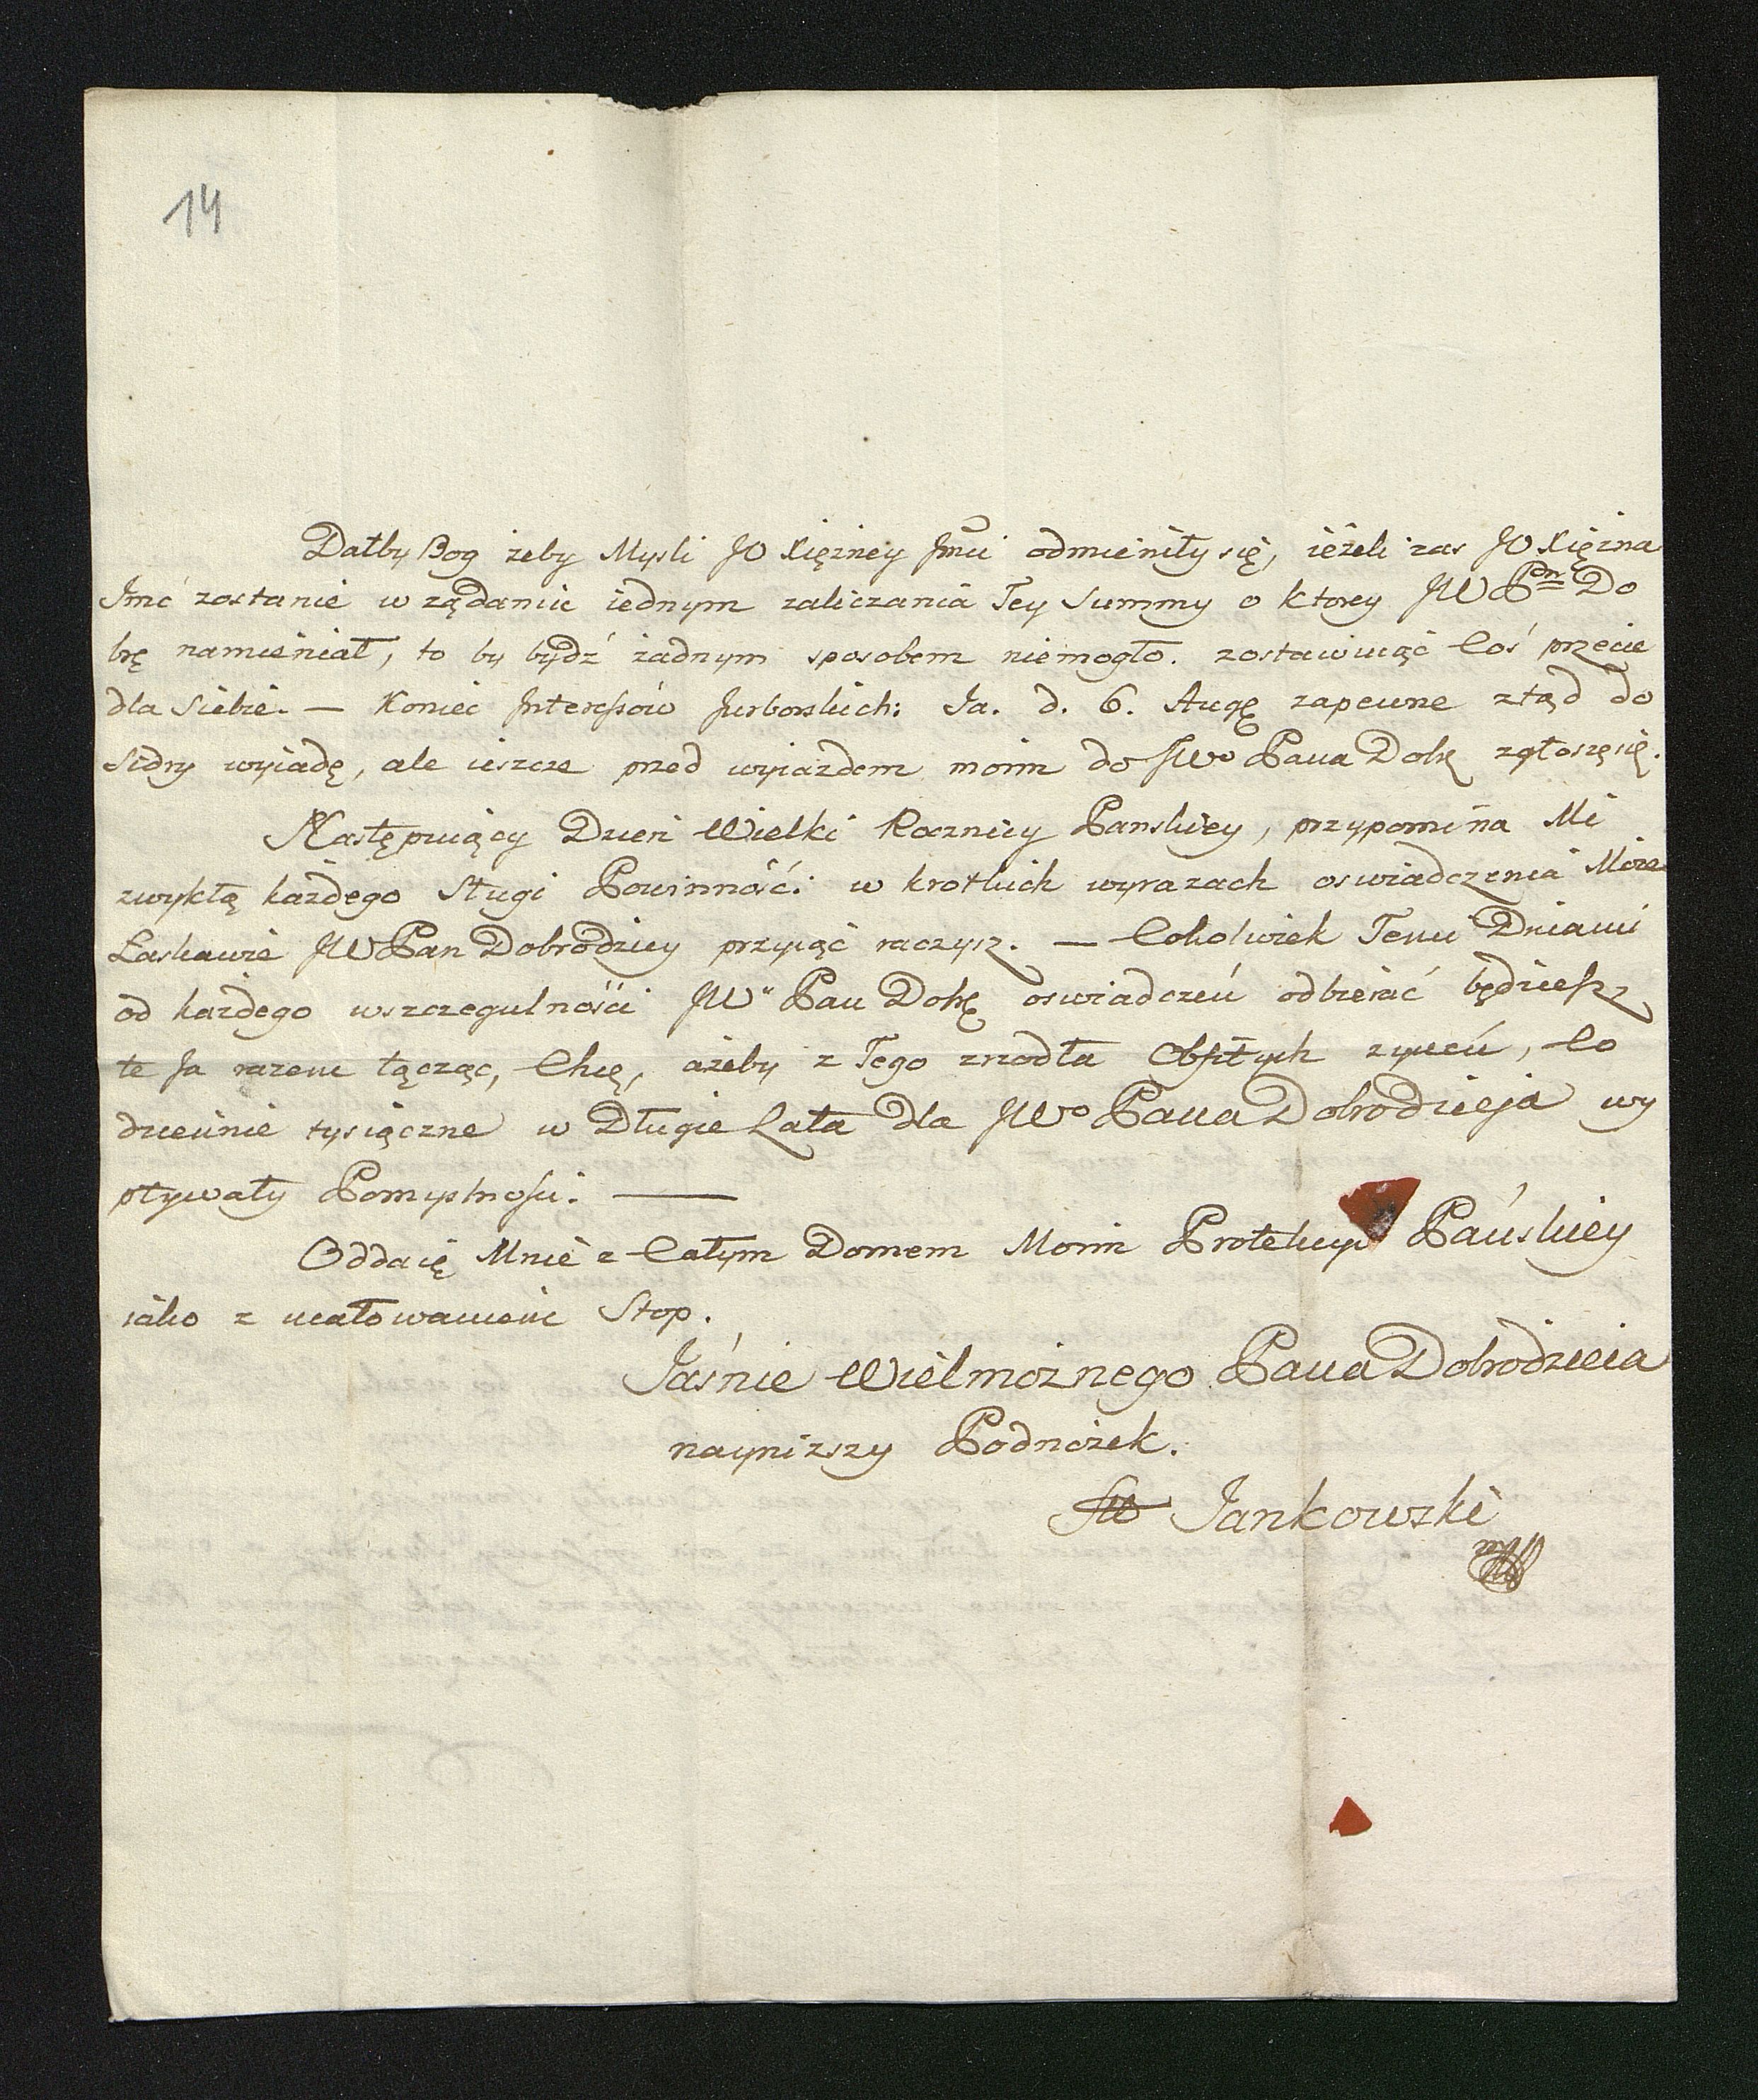 14
Dałby Bog żeby Mysli JO Xiężney Jmci odmieniły się, ieżeli zas JO Xiężna
Jmć zostanie w żądaniu iednym zaliczania Tey Summy o ktorey JW Pan Do
brę namieniał, to by bydź żadnym sposobem niemogło. zostawuiąc Coś przecie
dla Siebie. — Koniec Interessów Jurborskich: Ja. d. 6. Augę zapewne ztąd do
Sidry wyiadę, ale ieszcze przed wyiazdem moim do JWo Pana Dobrę zgłoszę się.
Następuiący Dzień Wielki Rocznicy Panskiey, przypomina Mi
zwykłą każdego Sługi Powinność: w krotkich wyrazach oswiadczenia Moie
Łaskawie JW Pan Dobrodziey przyiąć raczysz. — Cokolwiek Temi Dniami
od każdego wszczegulności JW Pan Dobrę oswiadczeń odbierać będziesz
te Ja razem łącząc, Chcę, ażeby z Tego zrzodła Obfitych życzeń, Co
dziennie tysiączne w Długie Lata Dla JWo Pana Dobrodzieja wy
pływały Pomyslnosci. —
Oddaię Mnie z Całym Domem Moim Protekcyi Pańskiey
iako z ucałowaniem Stop.
Jaśnie Wielmożnego Pana Dobrodzieia
nayniższy Podnóżek.
Jankowski